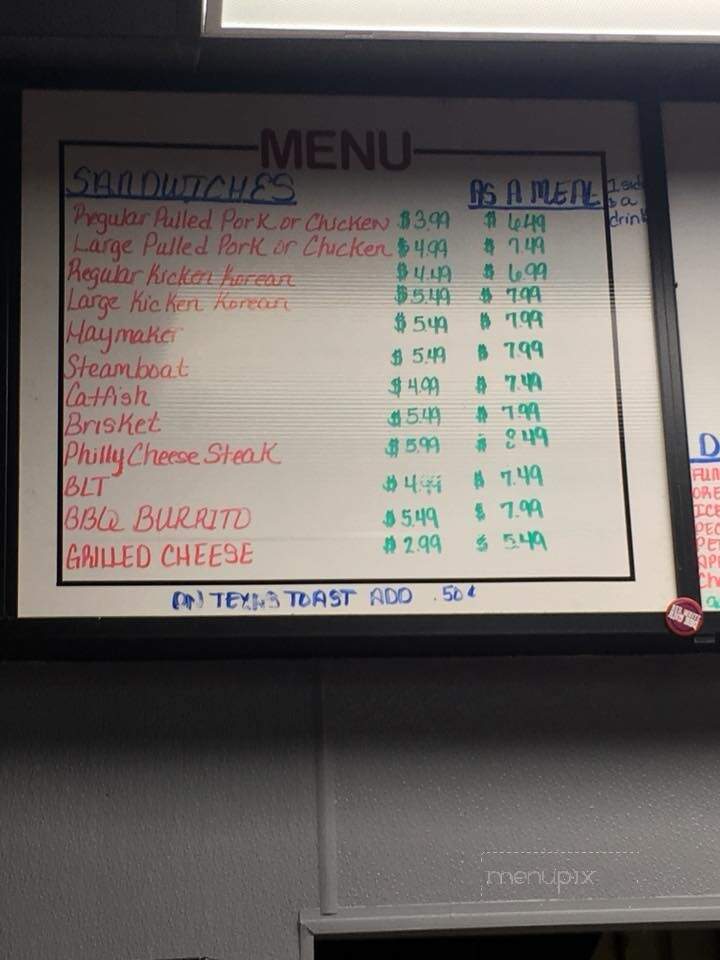 MENU
SANDWICHES AS A MEAL 1 side
& a
drink
Regular Pulled Pork or Chicken $3.99 $6.49
Large Pulled Pork or Chicken $4.99 $7.49
Regular Kicken Korean $4.49 $6.99
Large Kicken Korean $5.49 $7.99
Haymaker $5.49 $7.99
Steamboat $5.49 $7.99
Catfish $4.99 $7.49
Brisket $5.49 $7.99
Philly Cheese Steak $5.99 $8.49
BLT $4.99 $7.49
BBQ BURRITO $5.49 $7.99
GRILLED CHEESE $2.99 $5.49
ON TEXAS TOAST ADD .50¢
D
FUN
ORE
ICE
PEC
PE
AP
Ch
menupix